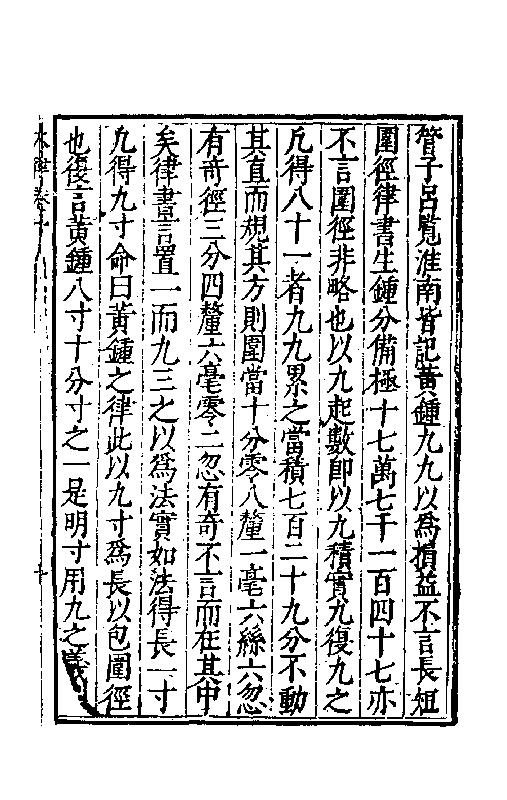 管子呂覽淮南皆記黃鍾九九以爲損益不言長短
圍徑律書生鍾分備極十七萬七千一百四十七亦
不言圍徑非略也以九起數即以九積實九復九之
凡得八十一者九九累之當積七百二十九分不動
其直而規其方則圍當十分零八釐一毫六絲六忽
有奇徑三分四釐六毫零二忽有奇不言而在其中
矣律書言置一而九三之以爲法實如法得長一寸
凢得九寸命曰黃鍾之律此以九寸爲長以包圍徑
也復言黃鍾八寸十分寸之一是明寸用九之義